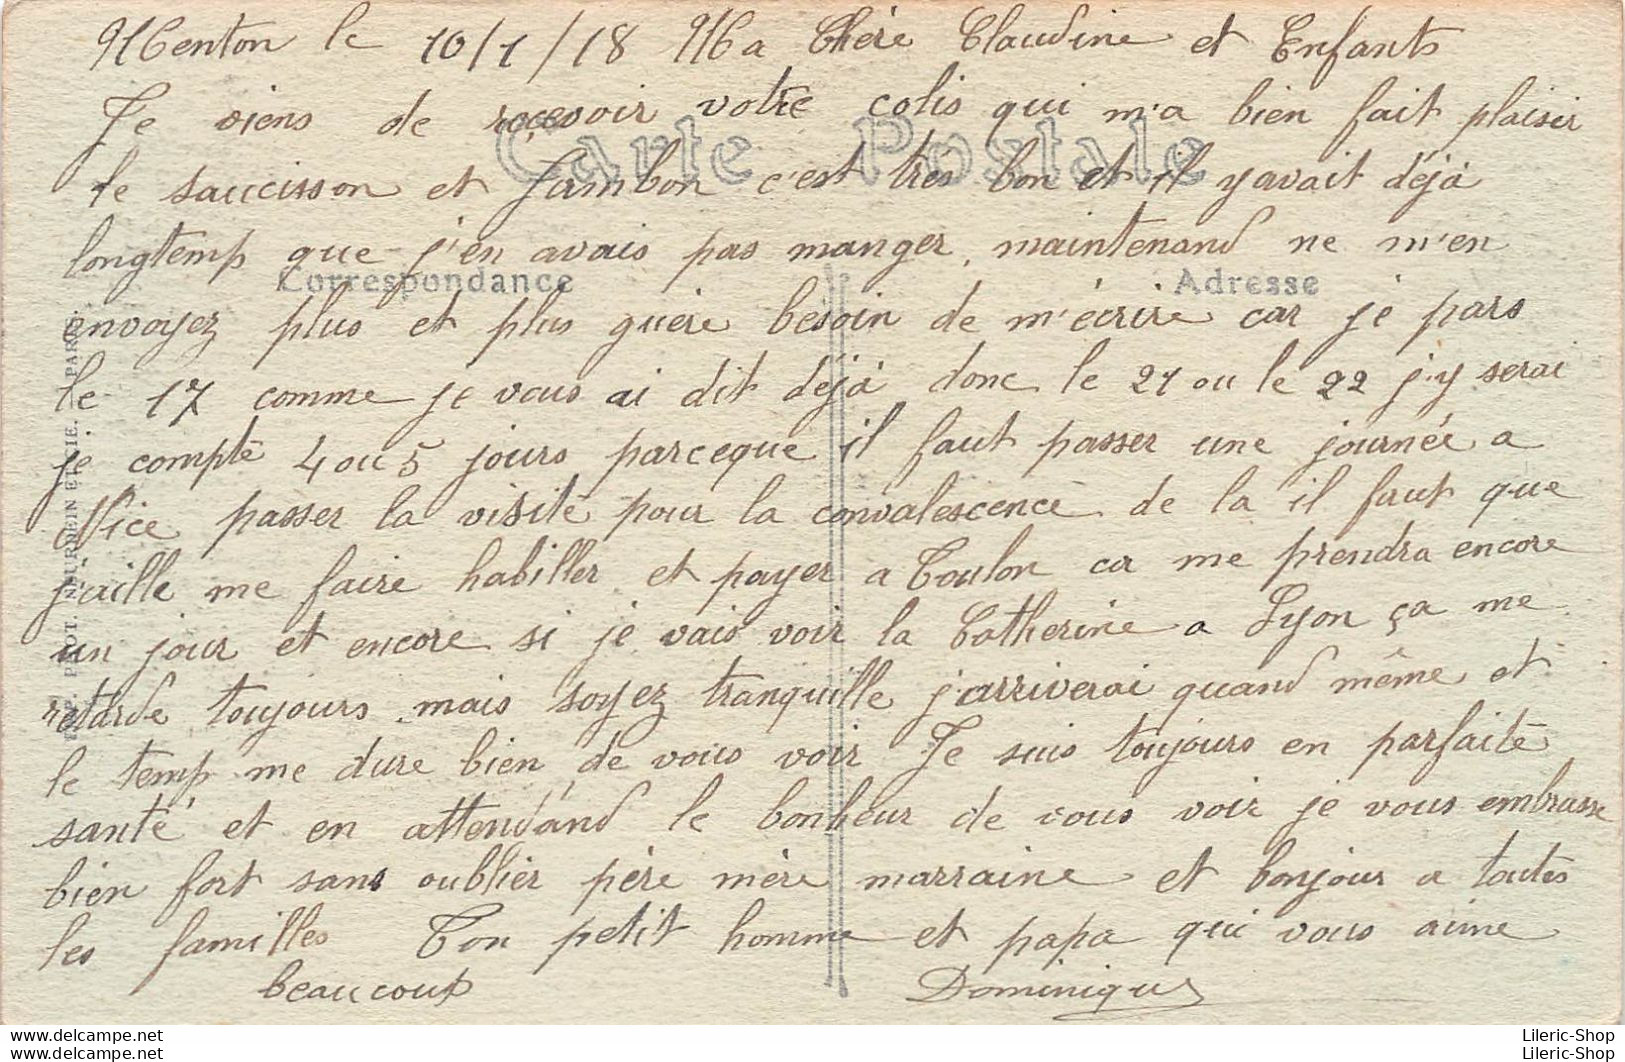 Menton le 10/1/18 Ma Chère Claudine et Enfants
Je viens de reçevoir votre colis qui m'a bien fait plaisir
Carte Postale
le saucisson et Jambon c'est tres bon et il yavait déjà
longtemp que j'en avais pas manger, maintenand ne m'en
Correspondance
Adresse
envoyez plus et plus guère besoin de m'écrire car je pars
le 17 comme je vous ai dit déjà donc le 21 ou le 22 j'y serai
je compte 4 ou 5 jours parceque il faut passer une journée a
Nice passer la visite pour la convalescence de la il faut que
j'aille me faire habiller et payer a Toulon ca me prendra encore
un jour et encore si je vais voir la Catherine a Lyon ça me
retarde toujours mais soyez tranquille j'arriverai quand même et
le temp me dure bien de vous voir Je suis toujours en parfaite
santé et en attendand le bonheur de vous voir je vous embrasse
bien fort sans oublier père mère marraine et bonjour a toutes
les familles Ton petit homme et papa qui vous aime
beaucoup Dominique
IMP. PHOT. NEURDEIN ET CIE. PARIS.
Lileric-Shop
Lileric-Shop
www.delcampe.net
www.delcampe.net